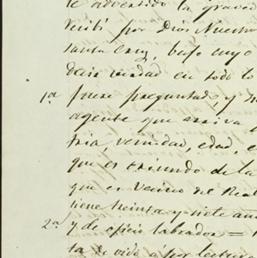 te advertido la graved
recibí por Dios Nuestro
santa Cruz, bajo cuyo
decir verdad en todo lo
1ª fuere preguntado, y
agente que arriva
tria, vecindad, edad,
que es oriundo de la
que es Vecino del Real
tiene treinta y siete añ
2ª y de oficio labrador =
ta de oido á por lectura